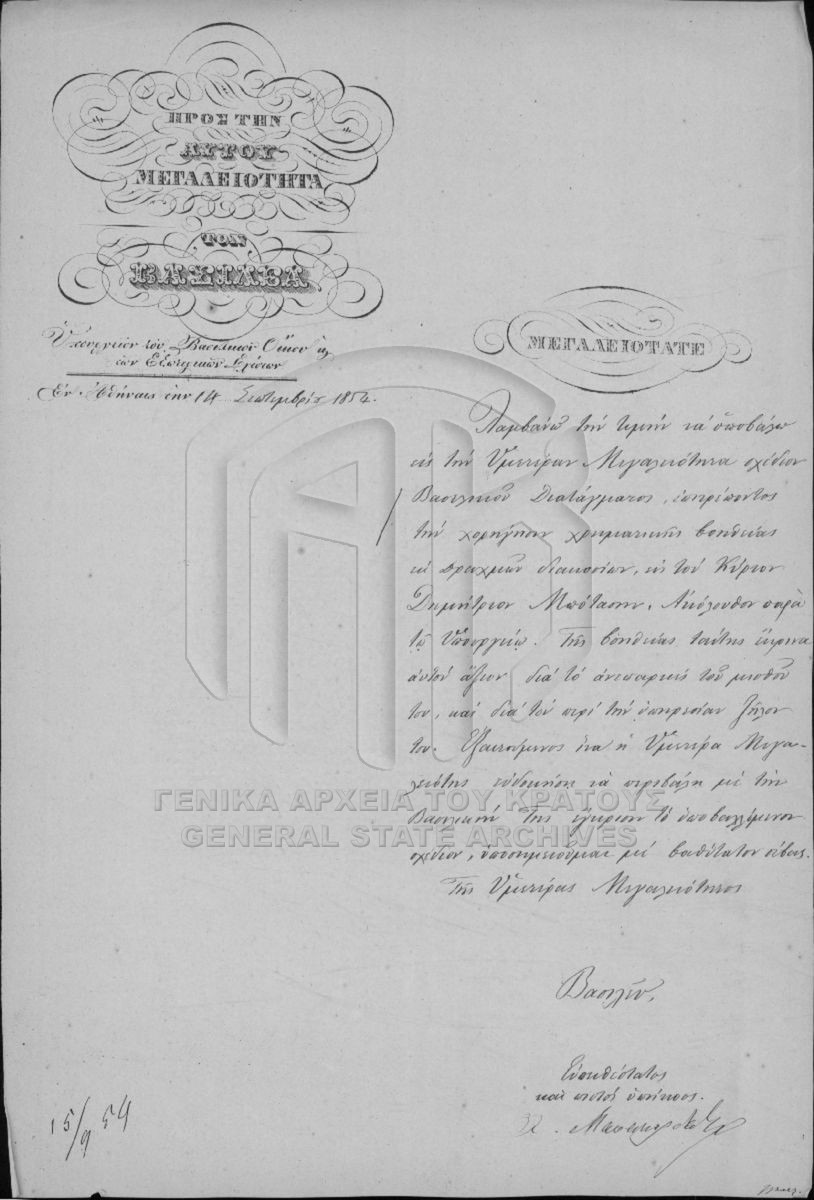 ΠΡΟΣ ΤΗΝ
ΑΥΤΟΥ
ΜΕΓΑΛΕΙΟΤΗΤΑ
ΤΟΝ
ΒΑΣΙΛΕΑ
Ὑπουργεῖον τοῦ Βασιλικοῦ Οἴκου καὶ
τῶν Ἐξωτερικῶν Σχέσεων
Ἐν Ἀθήναις τὴν 14 Σεπτεμβρίου 1854.
ΜΕΓΑΛΕΙΟΤΑΤΕ
Λαμβάνω τὴν τιμὴν νὰ ὑποβάλω
εἰς τὴν Ὑμετέραν Μεγαλειότητα σχέδιον
Βασιλικοῦ Διατάγματος, ἐπιτρέποντος
τὴν χορήγησιν χρηματικῆς βοηθείας
ἐκ δραχμῶν διακοσίων, εἰς τὸν Κύριον
Δημήτριον Μπότασην, Ἀκόλουθον παρὰ
τῷ Ὑπουργείῳ. Τῆς βοηθείας ταύτης ἔκρινα
αὐτὸν ἄξιον διὰ τὸ ἀνεπαρκὲς τοῦ μισθοῦ
του, καὶ διὰ τὸν περὶ τὴν ὑπηρεσίαν ζῆλον
του. Ἐξαιτούμενος ἵνα ἡ Ὑμετέρα Μεγα-
λειότης εὐδοκήσῃ νὰ περιβάλῃ μὲ τὴν
Βασιλικήν Της ἔγκρισιν τὸ ὑποβαλλόμενον
σχέδιον, ὑποσημειοῦμαι μὲ βαθύτατον σέβας.
Τῆς Ὑμετέρας Μεγαλειότητος
Βασιλεῦ,
Εὐπειθέστατος
καὶ πιστὸς ὑπήκοος.
15/9 54
ΓΕΝΙΚΑ ΑΡΧΕΙΑ ΤΟΥ ΚΡΑΤΟΥΣ
GENERAL STATE ARCHIVES